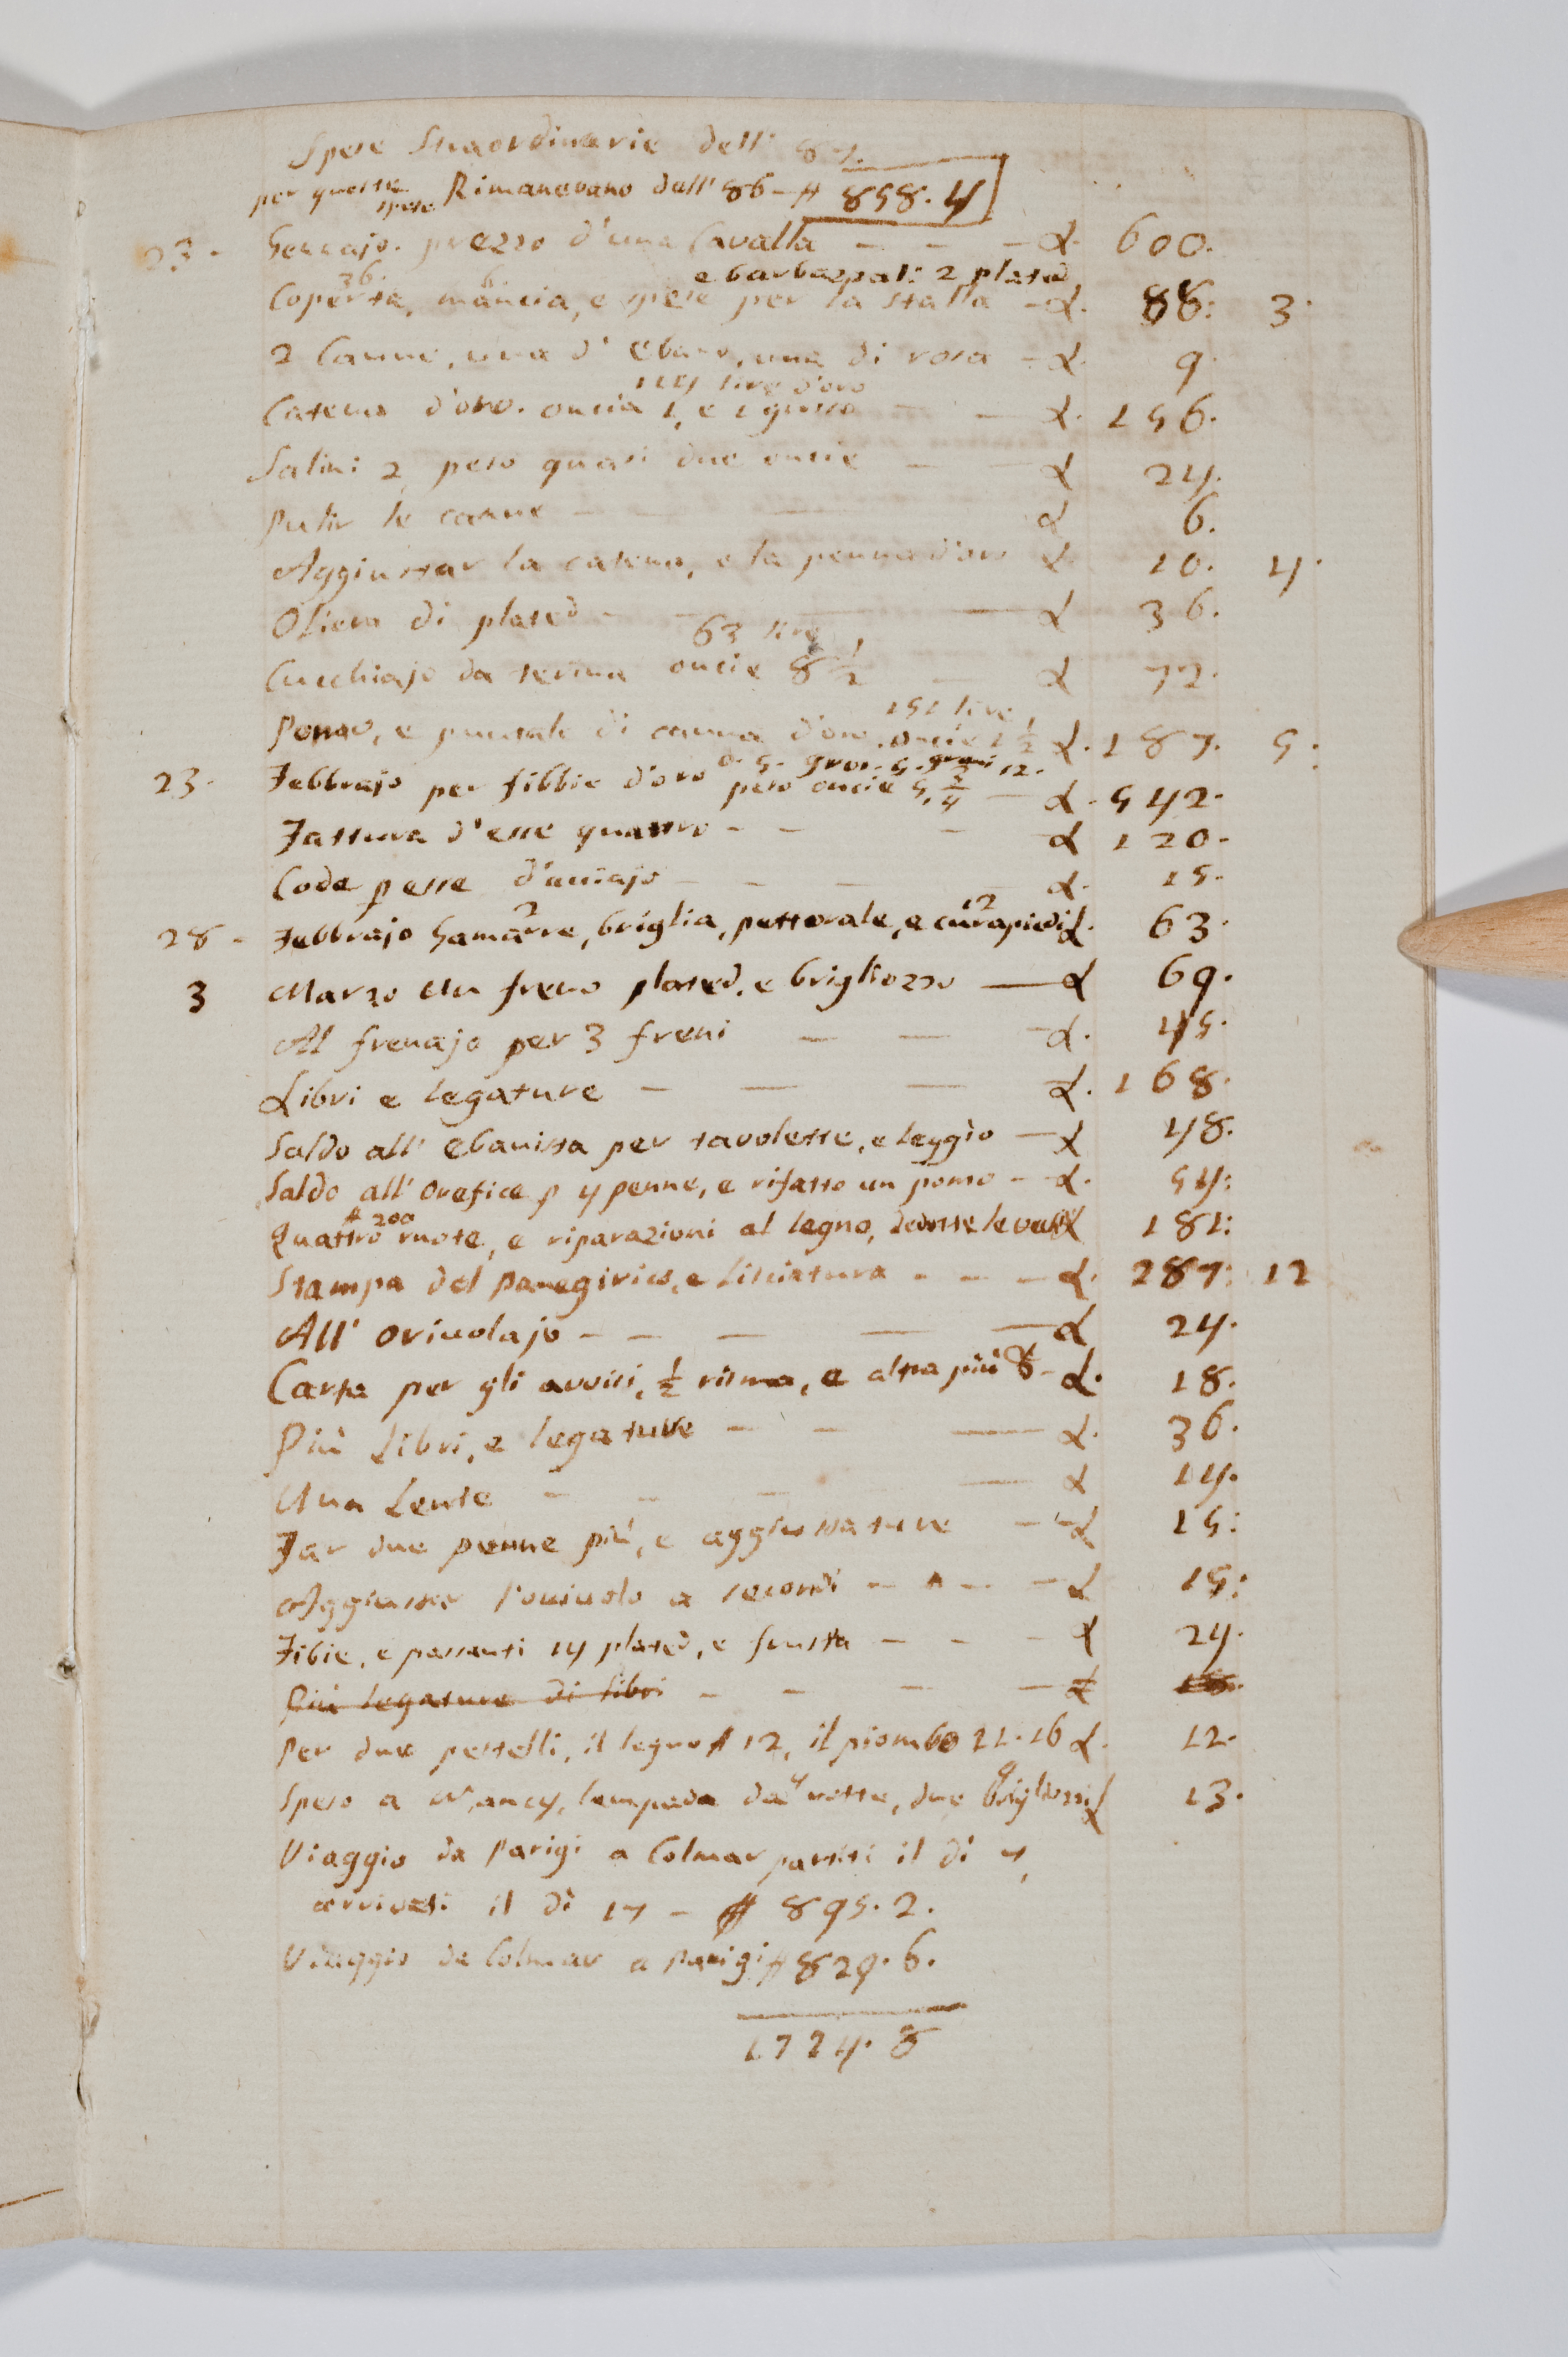 Spese Straordinarie dell' 87.
per queste spese Rimanevano dell' 86 - # 858. 4
23 - Gennajo. prezzo d'una Cavalla - - - L. 600.
36. 6 e barbazzali 2 plated
Coperta, mancia, e spese per la stalla - L. 88: 3.
2 Canne, una d' Ebano, una di rosa - L. 9.
114 lire d'oro
Catena d'oro. oncia 1, e 1 grosso - L. 156.
Salini 2, peso quasi due oncie - L 24.
Pulir le canne - L 6.
Aggiustar la catena, e la penna d'oro L. 10. 4.
Oliera di plated - - L 36.
63 lire
Cucchiajo da terina oncie 8 ½ - L 72.
151 lire
Pomo, e puntale di canna d'oro. oncie 1 ½ L. 187. 5:
o. 5. gros. 5. grani 12.
23. Febbrajo per fibbie d'oro peso oncie 5, ¾ - L. 542.
Fattura d'esse quattro - - - L 120.
Code p esse d'acciajo - - - L. 15.
2 12
28 - Febbrajo Gamarre, briglia, pettorale, e curapiedi L. 63.
3 Marzo Un freno plated, e brigliozzo - L 69.
Al frenajo per 3 freni - - - L. 45.
Libri e legature - - - L. 168.
Saldo all' Ebanista per tavolette, e leggio - L 48.
Saldo all' Orefice p 4 penne, e rifatto un pomo - L. 54:
# 200
Quattro ruote, e riparazioni al legno, dedotte le L 181:
Stampa del Panegirico, e Lisciatura - - - L. 287: 12
All' Oriuolajo - - - - L 24.
Carta per gli avvisi, ½ risma, e altra più - L. 18.
Più Libri, e legature - - - L. 36.
Una Lente - - - - L 14.
Far due penne più, e aggiustature - - L 15:
Aggiustar l'oriuolo a secondi - - - L 15:
Fibie, e passanti 14 plated, e frusta - - - L 24.
Più legature di libri - - - - L
Per due pestelli, il legno # 12, il piombo 21. 16 L. 12.
4
Speso a Nancy, lampada da notte, due brigliozzi L 13.
Viaggio da Parigi a Colmar partiti il dì 7,
arrivati il dì 17 - # 895. 2.
Viaggio da Colmar a Parigi # 829. 6.
1724. 8